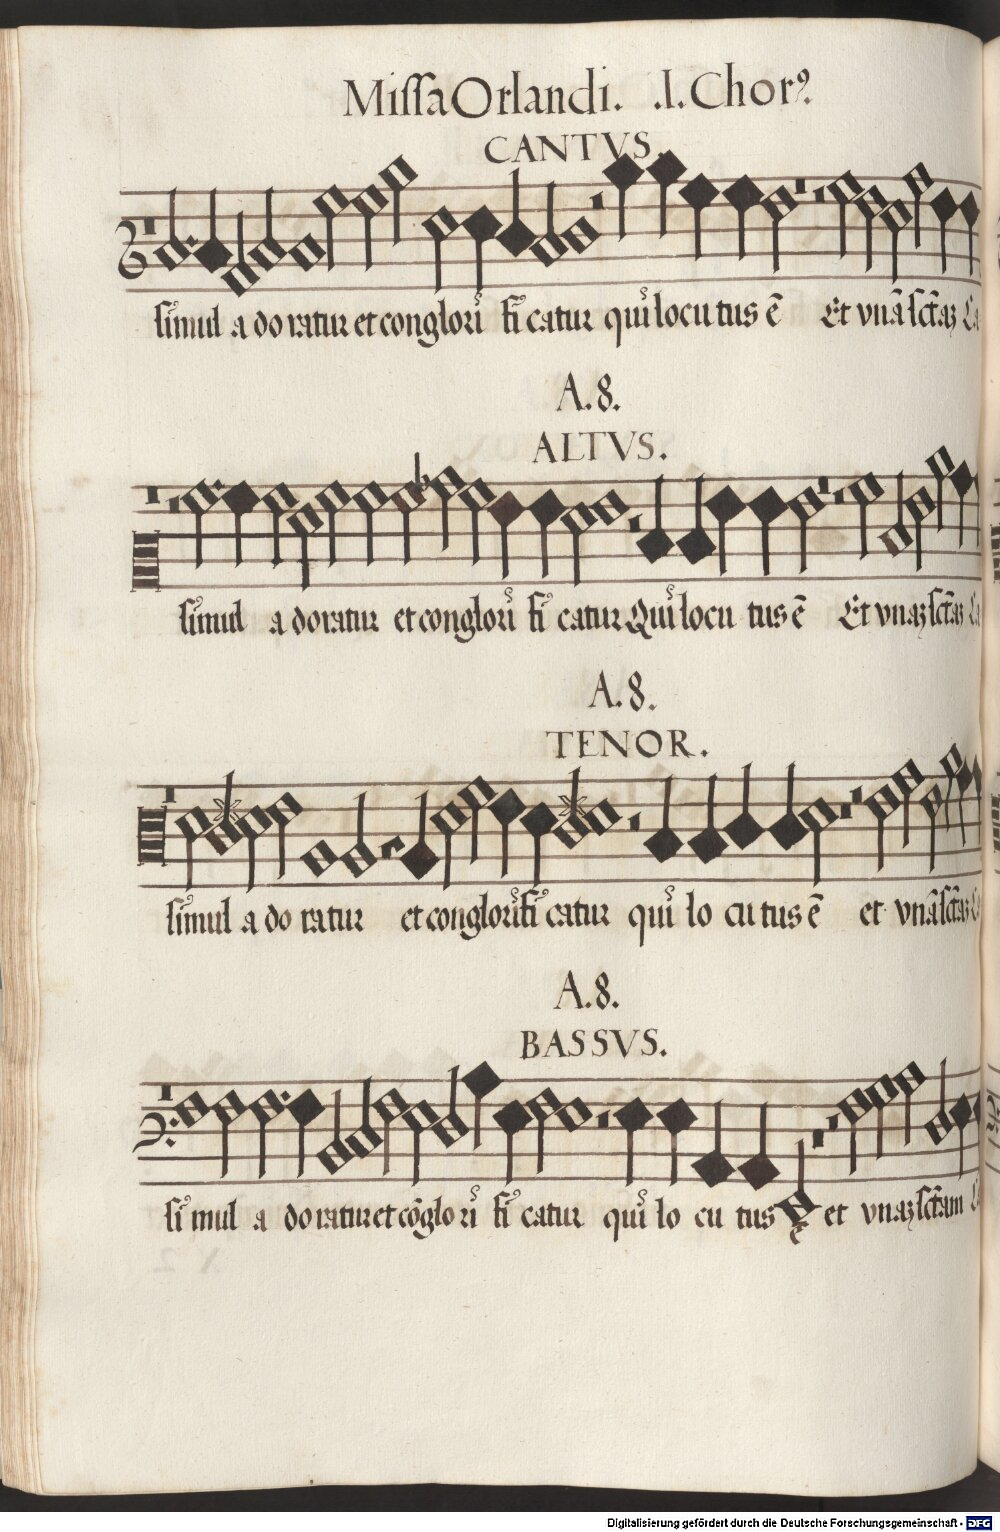 Missa Orlandi. .I. Chorꝰ.
CANTVS.
simul a do ratur et conglori fi catur qui locu tus ē Et vnā sctaꝫ
A. 8.
ALTVS.
simul a doratur et conglori fi catur Qui locu tus ē Et vnaꝫ sctaꝫ
A. 8.
TENOR.
simul a do ratur et conglori fi catur qui lo cu tus ē et vnā sctaꝫ
A. 8.
BASSVS.
si mul a do ratur et cōglo ri fi catur qui lo cu tus ē et vnaꝫ sctam
Digitalisierung gefördert durch die Deutsche Forschungsgemeinschaft - DFG